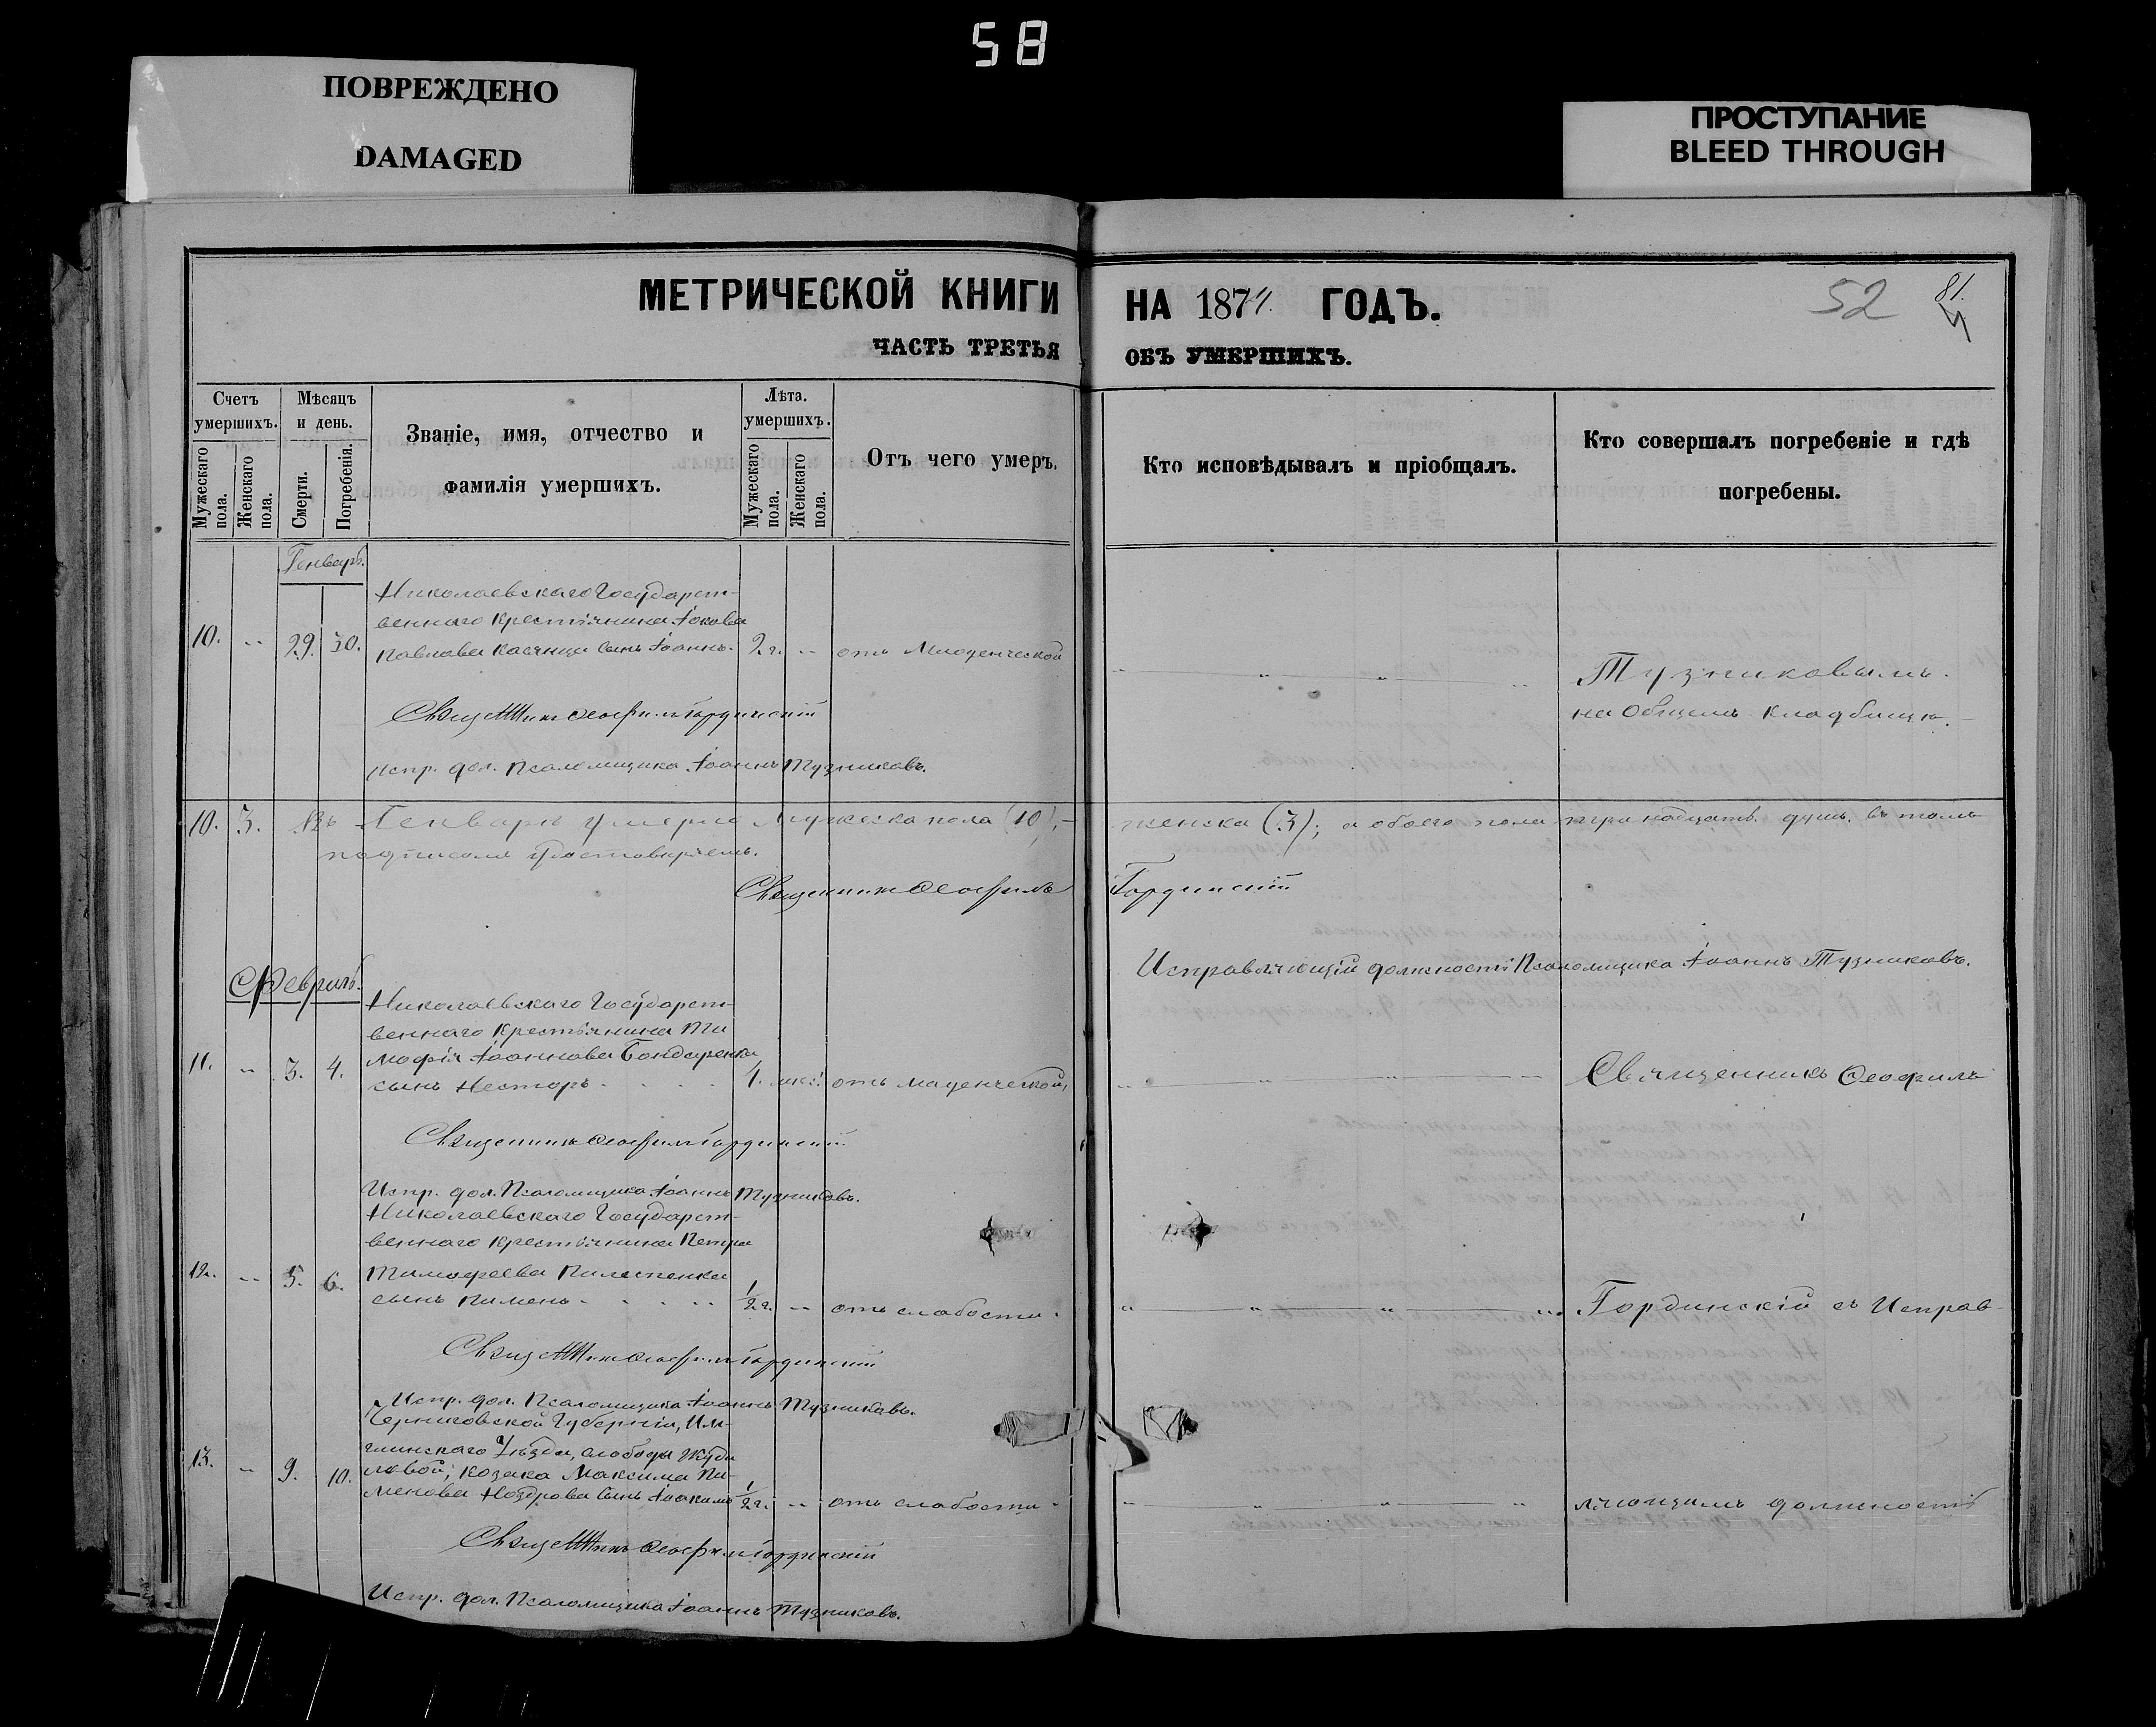 58
ПОВРЕЖДЕНО
DAMAGED
ПРОСТУПАНИЕ
BLEED THROUGH
МЕТРИЧЕСКОЙ КНИГИ
ЧАСТЬ ТРЕТЬЯ
НА 1874 ГОДЪ.
ОБЪ УМЕРШИХЪ.
52
81.
Счетъ умершихъ.
Мужескаго пола.
Женскаго пола.
Мѣсяцъ и день.
Смерти.
Погребенія.
Званіе, имя, отчество и
фамилія умершихъ.
Лѣта.
умершихъ.
Мужескаго пола.
Женскаго пола.
Отъ чего умеръ.
Кто исповѣдывалъ и пріобщалъ.
Кто совершалъ погребеніе и гдѣ
погребены.
Генварь.
Николаевскаго Государст-
веннаго крестьянина Іакова
10. " 29. 30. Павлова сынъ Іоаннъ. 2 г. " отъ Младенческой
Тузниковымъ.
на Общемъ кладбищѣ.
Священникъ Ѳеофилъ Гординскій
Испр. дол. Псаломщика Іоаннъ Тузниковъ.
10. 3. Въ Генварѣ умерло мужеска пола (10),
женска (3); а обоего пола тринадцать душъ. въ томъ
подписомъ удостовѣряемъ.
Священникъ Ѳеофилъ Гординскій
Исправляющій должность Псаломщика Іоаннъ Тузниковъ.
Февраль.
Николаевскаго Государст-
веннаго крестьянина Ти
11. " 3. 4. мофія Іоаннова Бондаренка
сынъ Несторъ 1. отъ маденческой,
Священникъ Ѳеофилъ
Священникъ Ѳеофилъ Гординскій
Испр. дол. Псаломщика Іоаннъ Тузниковъ.
Николаевскаго Государст-
веннаго крестьянина Петра
12. " 5. 6. Тимофеева Пилипенка
сынъ Пименъ 1/2 г. " отъ слабости.
Гординскій съ Исправ-
Священникъ Ѳеофилъ Гординскій
Испр. дол. Псаломщика Іоаннъ Тузниковъ.
Черниговской Губерніи, Ми-
глинскаго Уѣзда, слободы Жуди
13. " 9. 10. ловой; козака Максима Пи-
менова Ноздрова сынъ Іоакимъ 1/2 г. " отъ слабости
ляющимъ должность
Священникъ Ѳеофилъ Гординскій
Испр. дол. Псаломщика Іоаннъ Тузниковъ.